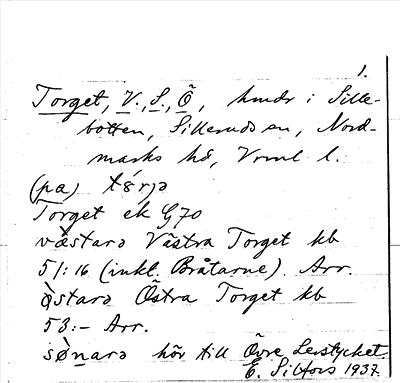 1.
Torget, V., S., Ö, hmdr i Sille-
botten, Sillerud sn, Nord-
marks hd, Vrml. l.
(pa) tərjə
Torget ek G70
vàstarə Västra Torget kb
51:16 (inkl. Bråtarne). Arr.
östarə Östra Torget kb
53:– Arr.
sønarə hör till Övre Lerstycket
1937